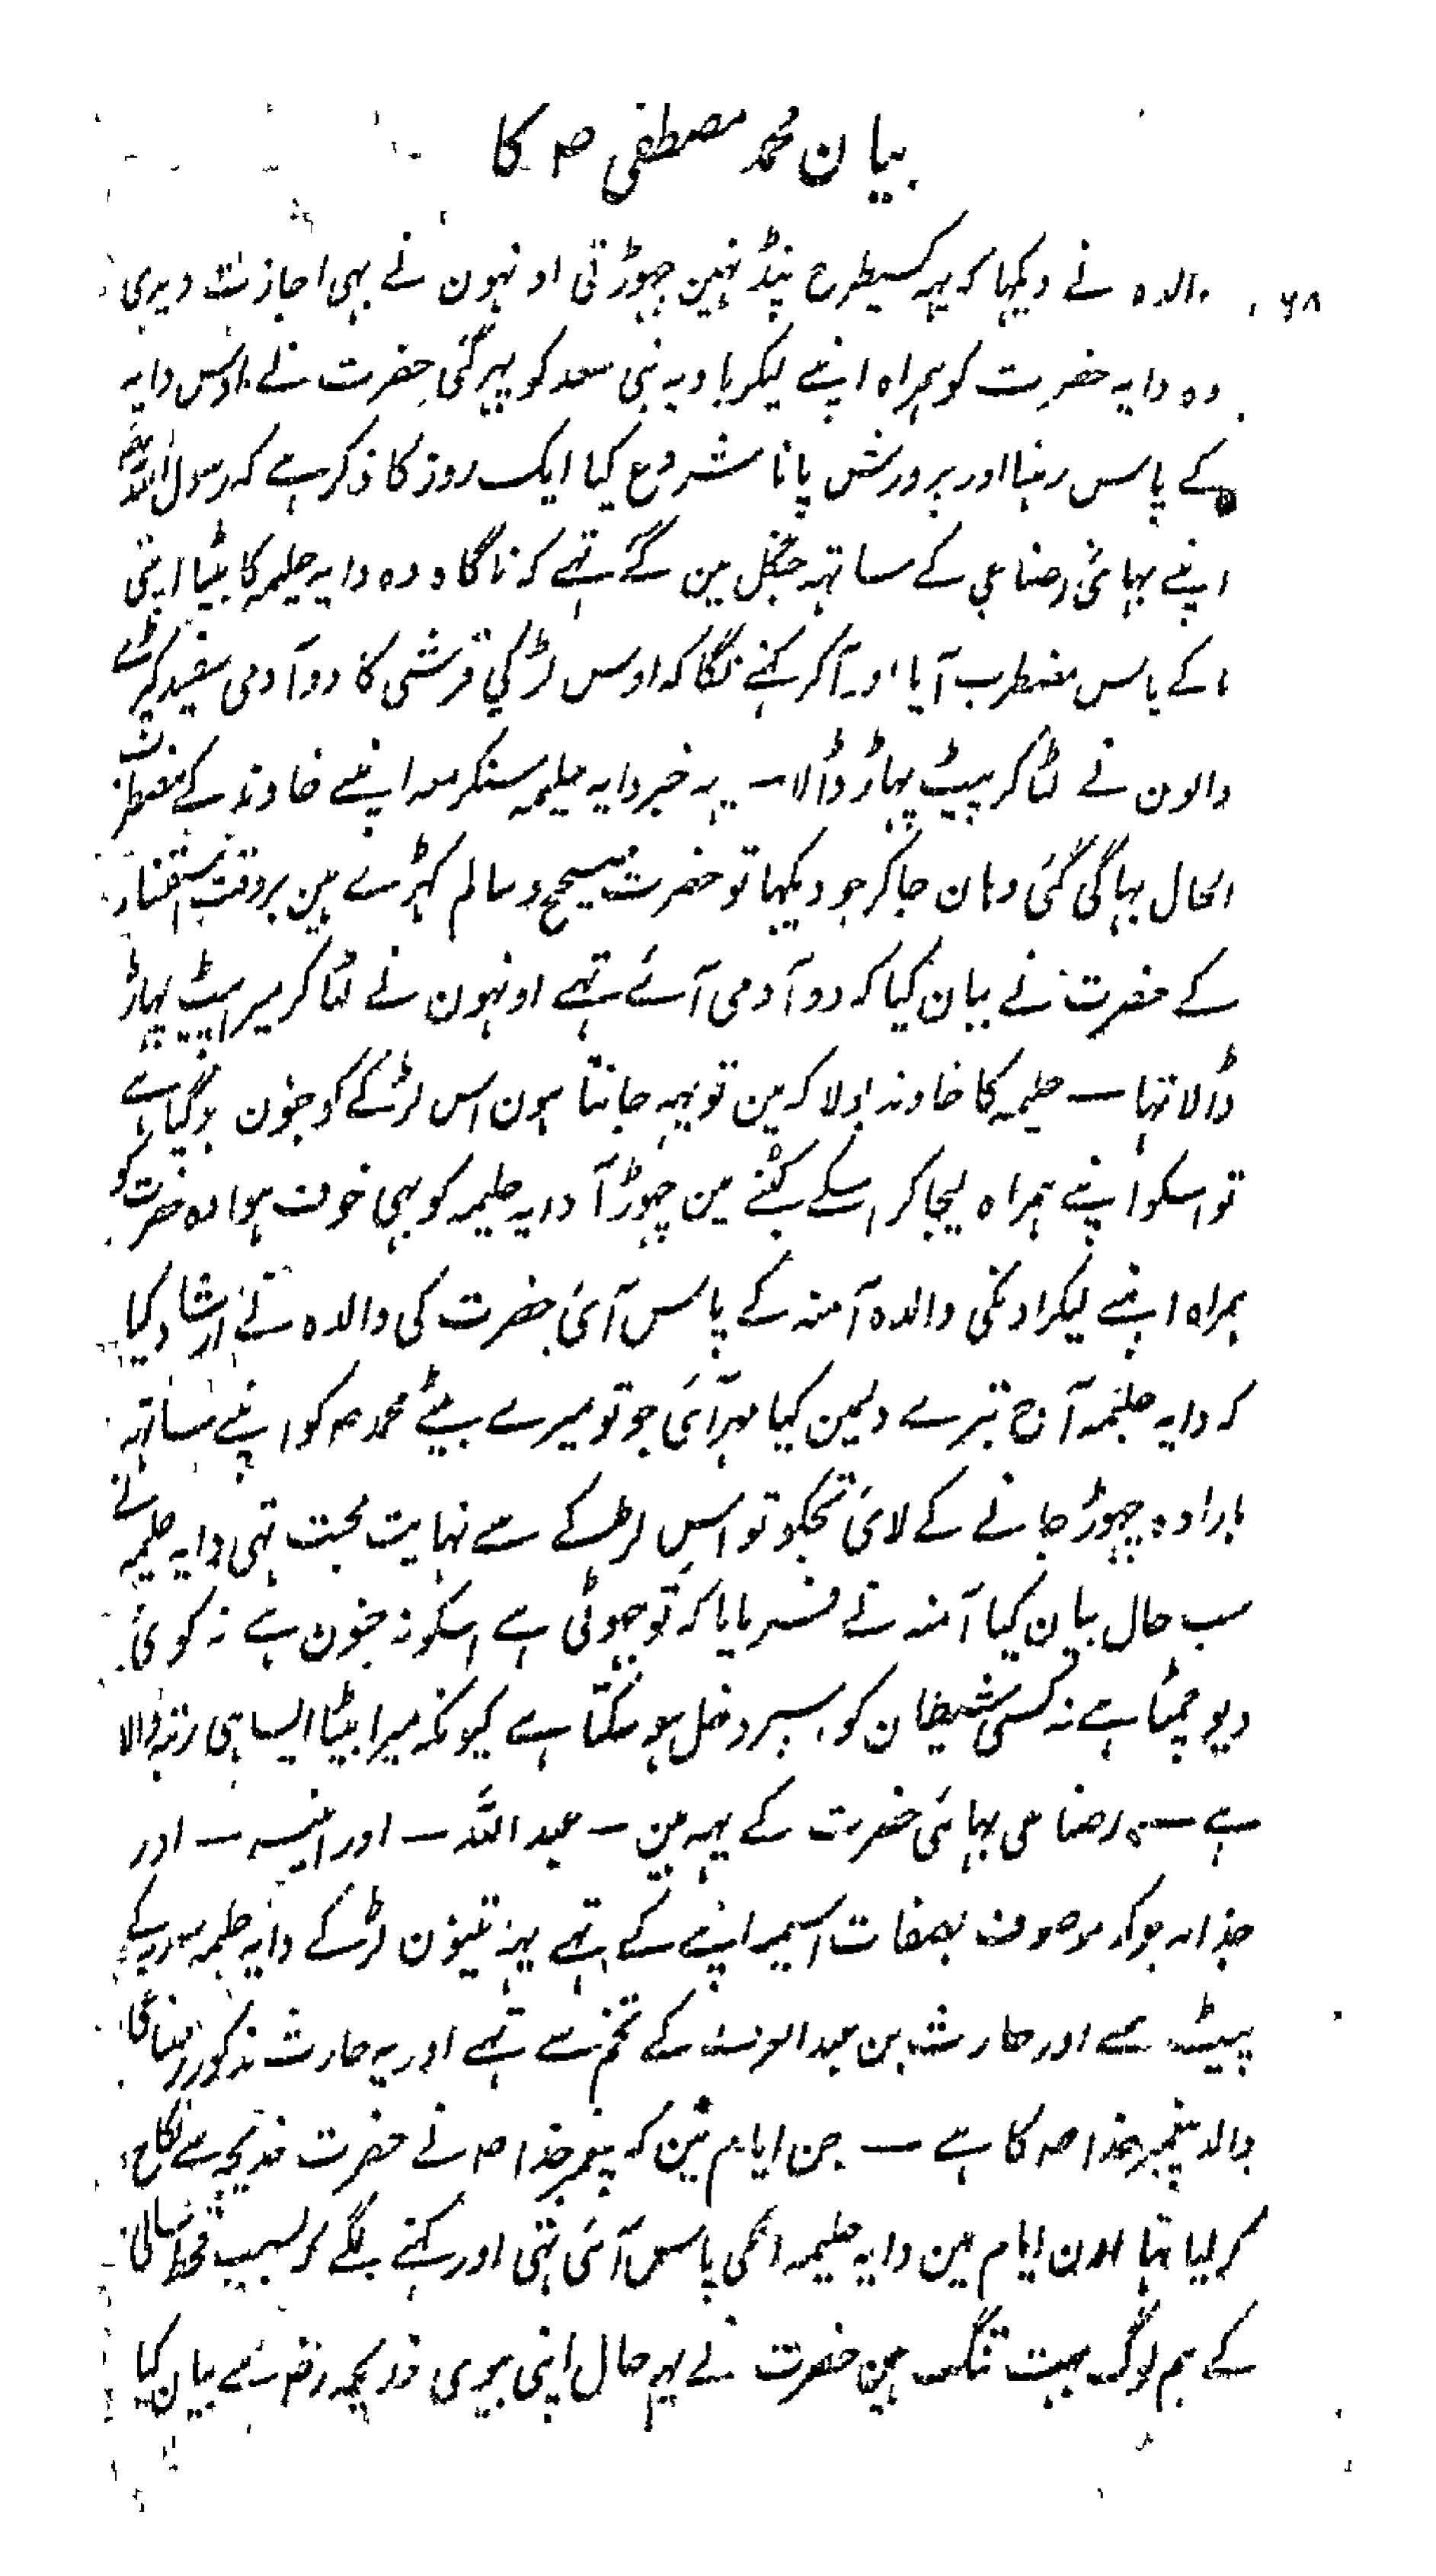 بیان محمد مصطفی ص کا
۶۸ والدہ نے دیکہا کہ یہہ کسیطرح پنڈ نہین چہوڑتی اونہون نے بہی اجازت دیدی
وہ دایہ حضرت کو ہمراہ اپنے لیکر بادیہ بنی سعد کو پہر گئی حضرت نے اوس دایہ
کے پاس رہنا اور پرورش پانا شروع کیا ایک روز کا ذکر ہے کہ رسول اللہ صلعم
اپنے بہائی رضاعی کے ساتہہ جنگل مین گے تہے کہ ناگاہ وہ دایہ حلیمہ کا بیٹا اپنی
ما کے پاس مضطرب آیا اور آکر کہنے لگا کہ اوس لڑکی قرشی کا دو آدمی سفید کپڑے
والون نے لٹا کر پیٹ پہاڑ ڈالا — یہ خبر دایہ حلیمہ سنکر معہ اپنے خاوند کے مضطرب
الحال بہاگی گئی وہان جاکر جو دیکہا تو حضرت صحیح و سالم کہڑے ہین بروقت استفسار
کے حضرت نے بیان کیا کہ دو آدمی آئے تہے اونہون نے لٹا کر میرا پیٹ پہاڑ
ڈالا تہا — حلیمہ کا خاوند بولا کہ مین تو یہہ جانتا ہون اس لڑکے کو جنون ہوگیا ہے
تو اسکو اپنے ہمراہ لیجا کر اسکے کنبے مین چہوڑ آ دایہ حلیمہ کو بہی خوف ہوا وہ حضرت کو
ہمراہ اپنے لیکر اونکی والدہ آمنہ کے پاس آئی حضرت کی والدہ نے ارشاد کیا
کہ دایہ حلیمہ آج تیرے دلمین کیا لہر آئی جو تو میرے بیٹے محمد ص کو اپنے ساتہہ
بارادہ چہوڑ جانے کے لائی تجکو تو اس لڑکے سے نہایت محبت تہی دایہ حلیمہ نے
سب حال بیان کیا آمنہ نے فرمایا کہ تو جہوٹی ہے اسکو نہ جنون ہے نہ کوئی
دیو چمٹا ہے نہ کسی شیطان کو اسپر دخل ہو سکتا ہے کیونکہ میرا بیٹا ایسا ہی رتبہ والا
ہے — رضاعی بہائی حضرت کے یہہ ہین — عبد اللہ — اور انیسہ — اور
جذامہ جو کہ موصوف بصفات اسمیہ اپنے کے تہے یہہ تینون لڑکے دایہ حلیمہ سعدیہ کے
پیٹ سے اور حارث بن عبد العزی کے تخم سے تہے اور یہ حارث مذکور رضاعی
والد پیغمبر خدا صہ کا ہے — جن ایام مین کہ پیغمبر خدا صہ نے حضرت خدیجہ سے نکاح
کرلیا تہا اون ایام مین دایہ حلیمہ انکی پاس آئی تہی اور کہنے لگے کہ بسبب قحط سالی
کے ہم لوگ بہت تنگ ہین حضرت نے یہہ حال اپنی بیوی خدیجہ رض سے بیان کیا